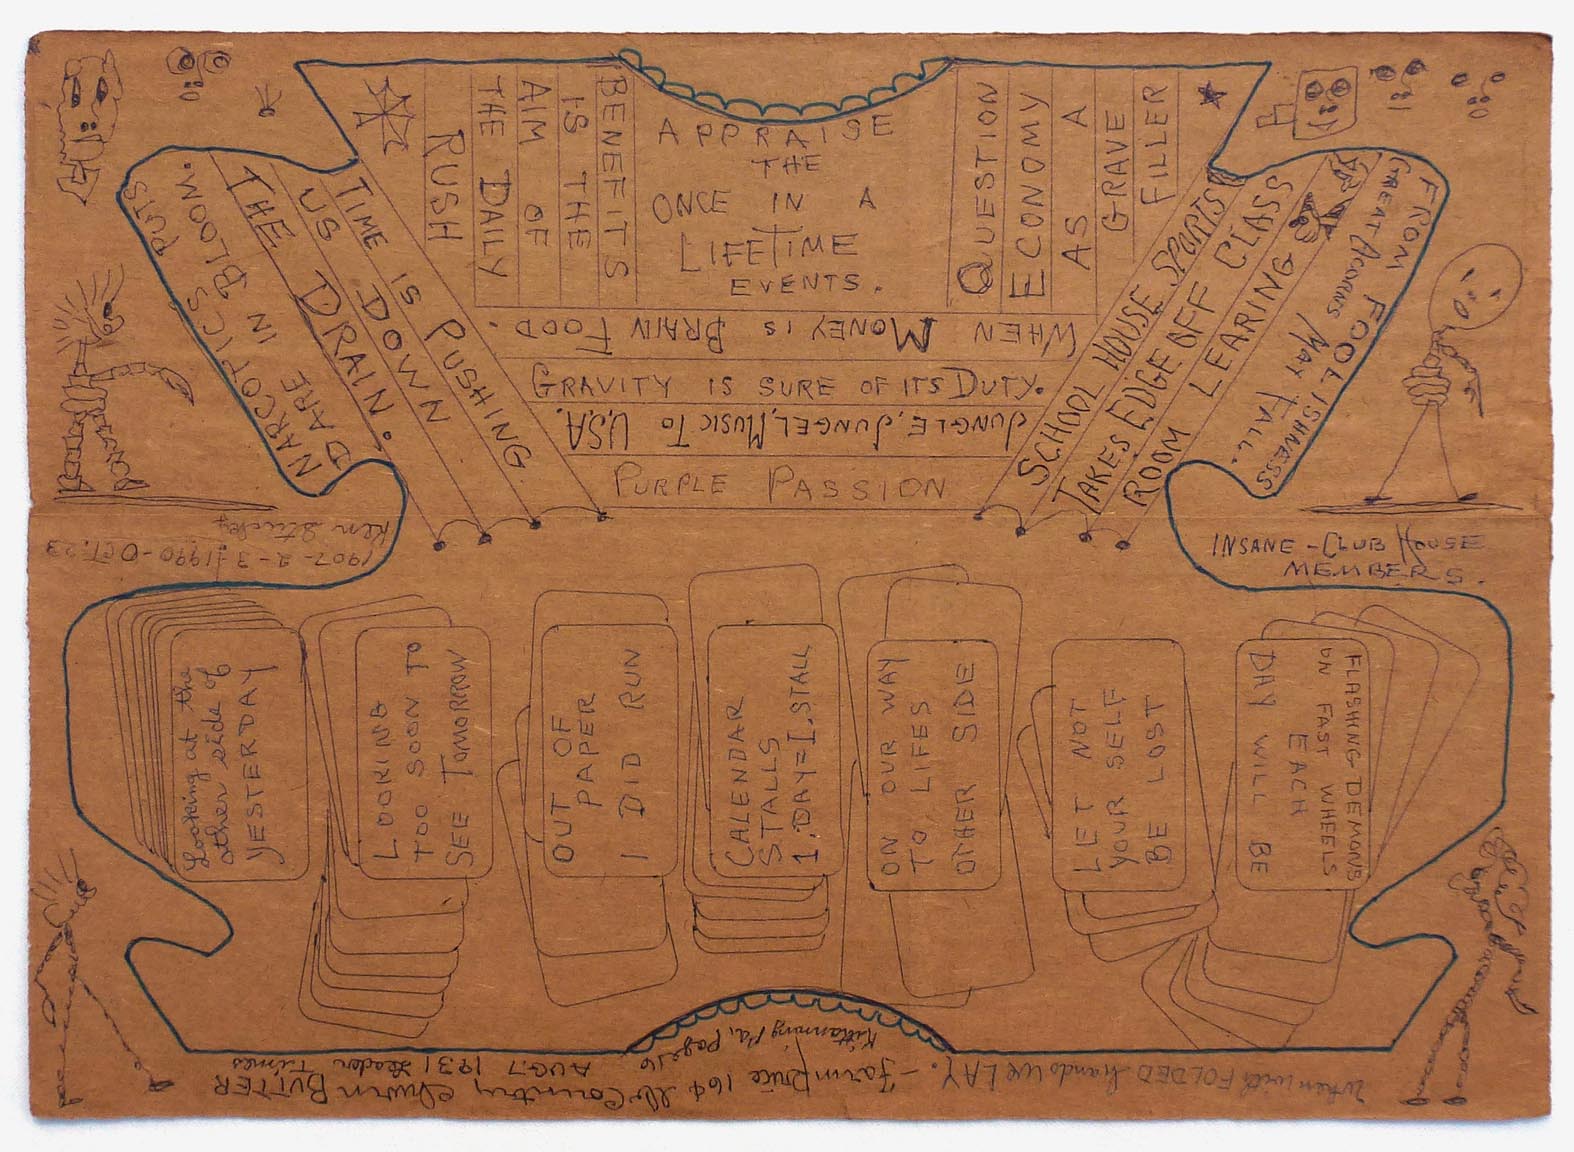 APPRAISE
THE
ONCE IN A
LIFETIME
EVENTS.
BENEFITS
IS THE
AIM OF
THE DAILY
RUSH
QUESTION
ECONOMY
AS A
GRAVE
FILLER
WHEN MONEY IS BRAIN FOOD.
GRAVITY IS SURE OF ITS DUTY.
JUNGLE, JUNGEL, MUSIC TO U.S.A.
PURPLE PASSION
TIME IS PUSHING
US DOWN
THE DRAIN.
NARCOTICS IN BLOOM.
PUTS
DARE
SCHOOL HOUSE SPORTS
TAKES EDGE OFF CLASS
ROOM LEARING
FROM FOOLISHNESS
GREAT ACORNS MAY FALL.
1907-2-3-1990-OCT.23
INSANE-CLUB HOUSE
MEMBERS.
Looking at the
other side of
YESTERDAY
LOOKING
TOO SOON TO
SEE TOMORROW
OUT OF
PAPER
I DID RUN
CALENDAR
STALLS
1.DAY=1.STALL
ON OUR WAY
TO LIFES
OTHER SIDE
LET NOT
YOUR SELF
BE LOST
FLASHING DEMONS
ON FAST WHEELS
EACH
DAY WILL BE
When with FOLDED hands WE LAY.
Farm Price 16¢ lb Country Churn BUTTER
AUG.7 1931 Leader Times
Kittanning Pa, Page 16